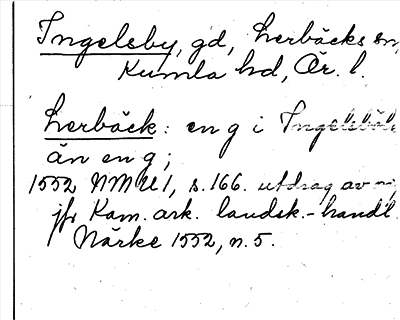 Ingelsby, gd, Lerbäcks sn,
Kumla hd, Ör. l.
Lerbäck: en g i
än en g;
1552 NMU 1, s. 166. utdrag av
jfr Kam. ark. landsk.-handl.
Närke 1552, n. 5.